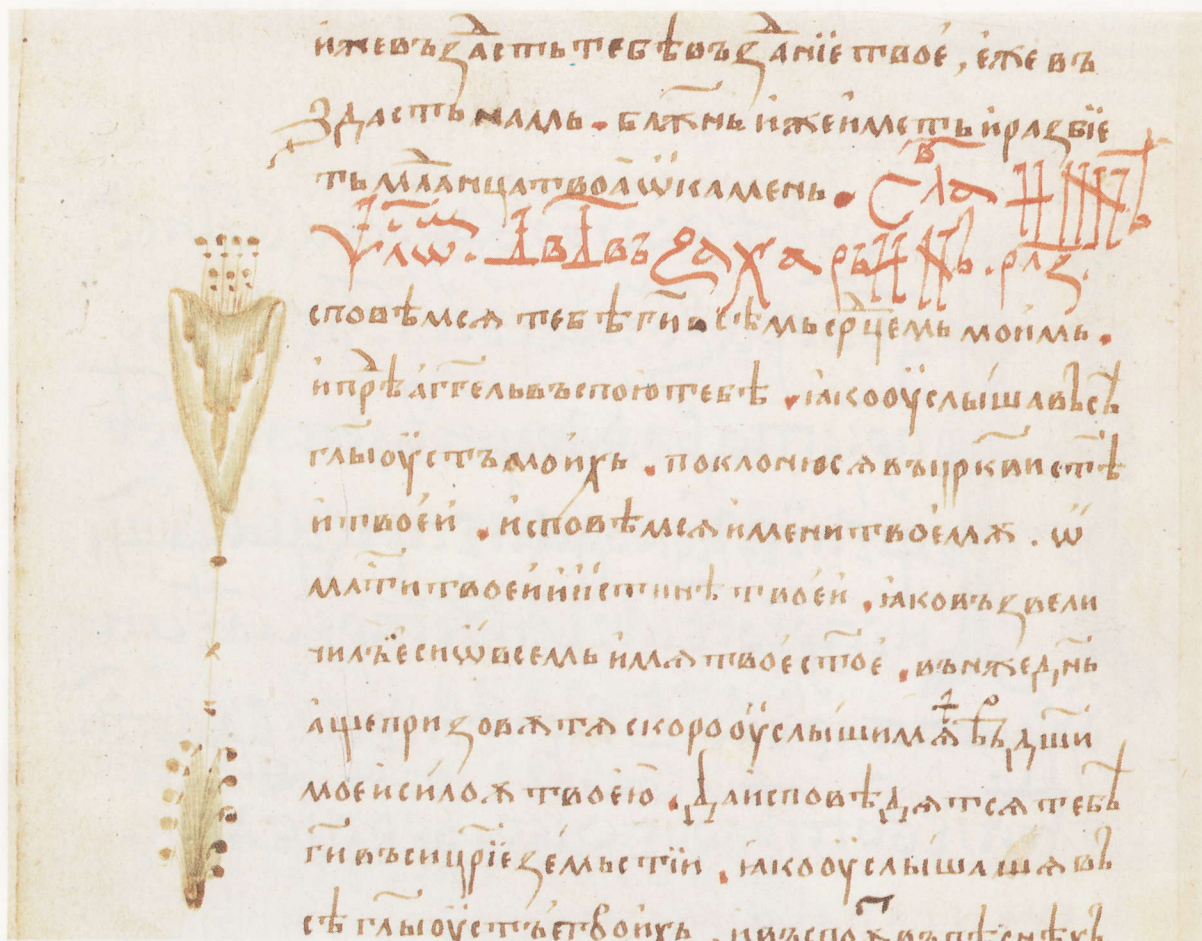 и҆жевъздасть тебѣ въздание твое́, е҆же въ
здасть намь. бл҃жнь и҆же и҆меть и҆ разбїе
ть мл҃аⷣнца твоа̀ ѿ камень. Сла ⷡ҇
ѱл҃ѡ. дв҃двъ захарьинъ. рл҃з.
споⷡ҇ѣмся тебѣ гѝ всѣмь срⷣцемь мои́мь.
и҆ прⷣѣ а҆гг҃ель въспою тебѣ. ꙗ҆ко оу҆слы́ша въсѣ
гл҃ы оу҆стъ мои́хь. поклоню ся въ цр҃кви ст҃ѣ
и твое́и. и҆сповѣмся и҆мени твое́мѫ. ѿ
мл҃ти твоеи́ и҆ и҆стинѣ твое́и. ꙗ҆ко възвели
чилъ е҆си ѿ всемь и҆мя твое́ ст҃ое. въ нже дн҃ь
а҆ще призовѫ тя скоро оу҆слы́ши мѧ̀ въ дш҃и
мое́и си́лоѫ твое́ю. Да исповѣдятся тебѣ
гѝ въси цр҃їе зе́мьстїи. ꙗ҆ко оу҆слы́шашя въ
сѣ гл҃ы оу҆стъ твои́хь. и въспоѫ въ пѣснѣхь